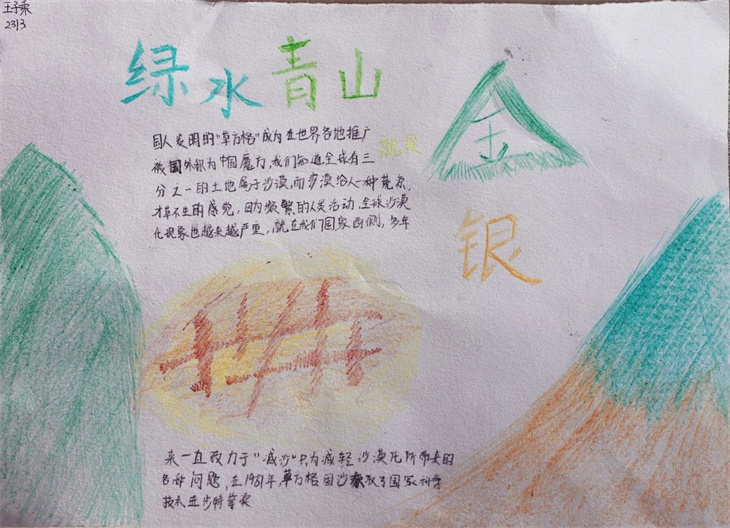 王子荣
2313
绿水青山
就是
金
银
国人发明的"草方格"成为在世界各地推广
被国外称为中国魔力,我们知道全球有三
分之一的土地属于沙漠,而沙漠给人一种荒凉,
寸草不生的感觉,因为频繁的人类活动,全球沙漠
化现象也越来越严重,就在我们国家西侧,多年
来一直致力于"减沙"只为减轻沙漠化所带来的
各种问题,在1981年草方格固沙获取了国家科学
技术进步特等奖